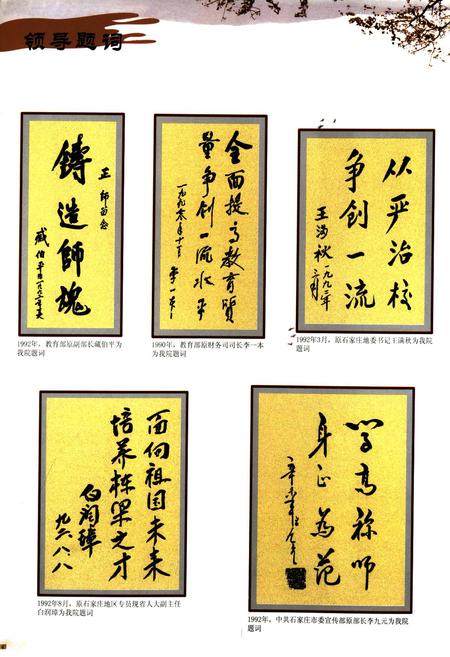 领导题词
正师留念
鑄造師魂
臧伯平
全面提高教育質
量争创一流水平
一九九〇年十二月
李一本
从严治校
争创一流
王满秋
一九九二年
三月
1992年，教育部原副部长臧伯平为
我院题词
1990年，教育部原财务司司长李一本
为我院题词
1992年3月，原石家庄地委书记王满秋为我院
题词
面向祖国未来
培养栋梁之才
白润璋
九二.八.八
学高称师
身正为范
1992年8月，原石家庄地区专员现省人大副主任
白润璋为我院题词
1992年，中共石家庄市委宣传部原部长李九元为我院
题词